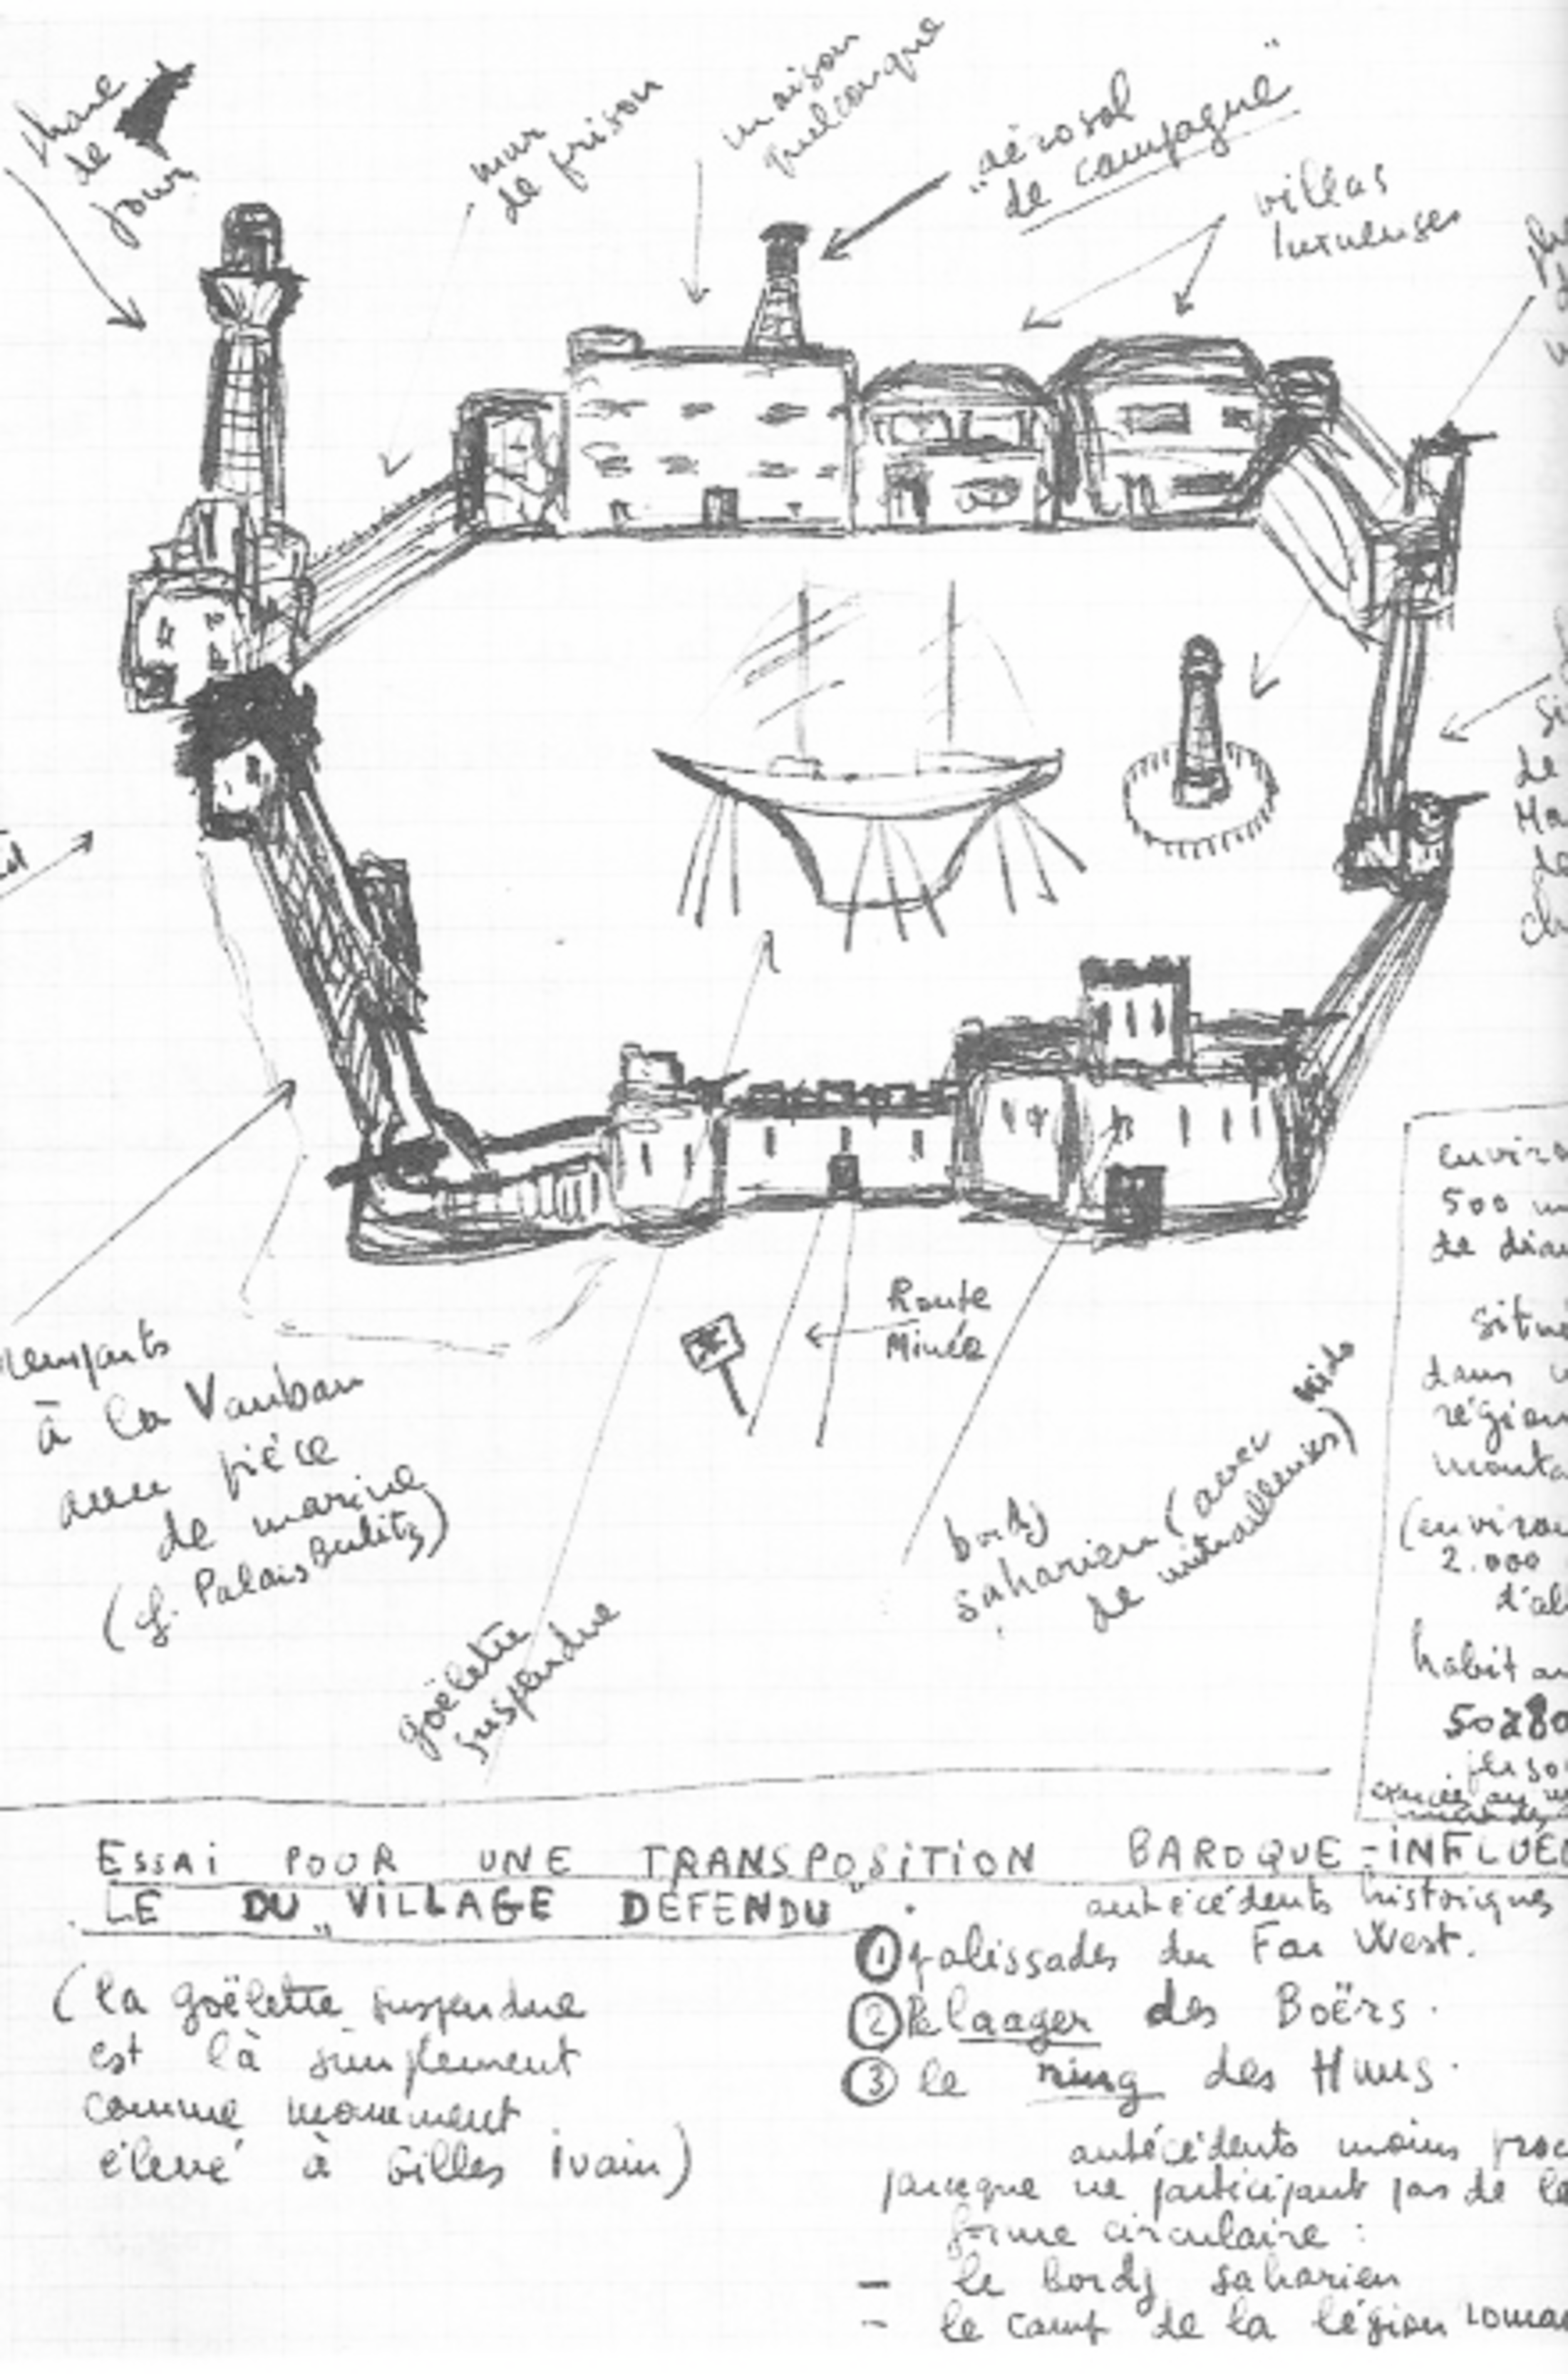 phare
de
jour
mur
de prison
maison
quelconque
"aérosol
de campagne"
villas
luxueuses
remparts
à la Vauban
avec pièce
de marine
(cf. Palais Bulitz)
goëlette
suspendue
Route
Minée
bordj
saharien (avec nids
de mitrailleuses)
enviro
500 m
de diam
situé
dans u
région
monta
(enviro
2.000
d'al
habit
50 à 80
perso
ESSAI POUR UNE TRANSPOSITION BAROQUE-INFLUE
LE DU "VILLAGE DÉFENDU".
(la goëlette suspendue
est là simplement
comme monument
élevé à Gilles Ivain)
antécédents historiques
① palissades du Far West.
② le laager des Boërs.
③ le ring des Huns.
antécédents moins proc
parceque ne participant pas de la
forme circulaire :
- le bordj saharien
- le camp de la légion romai